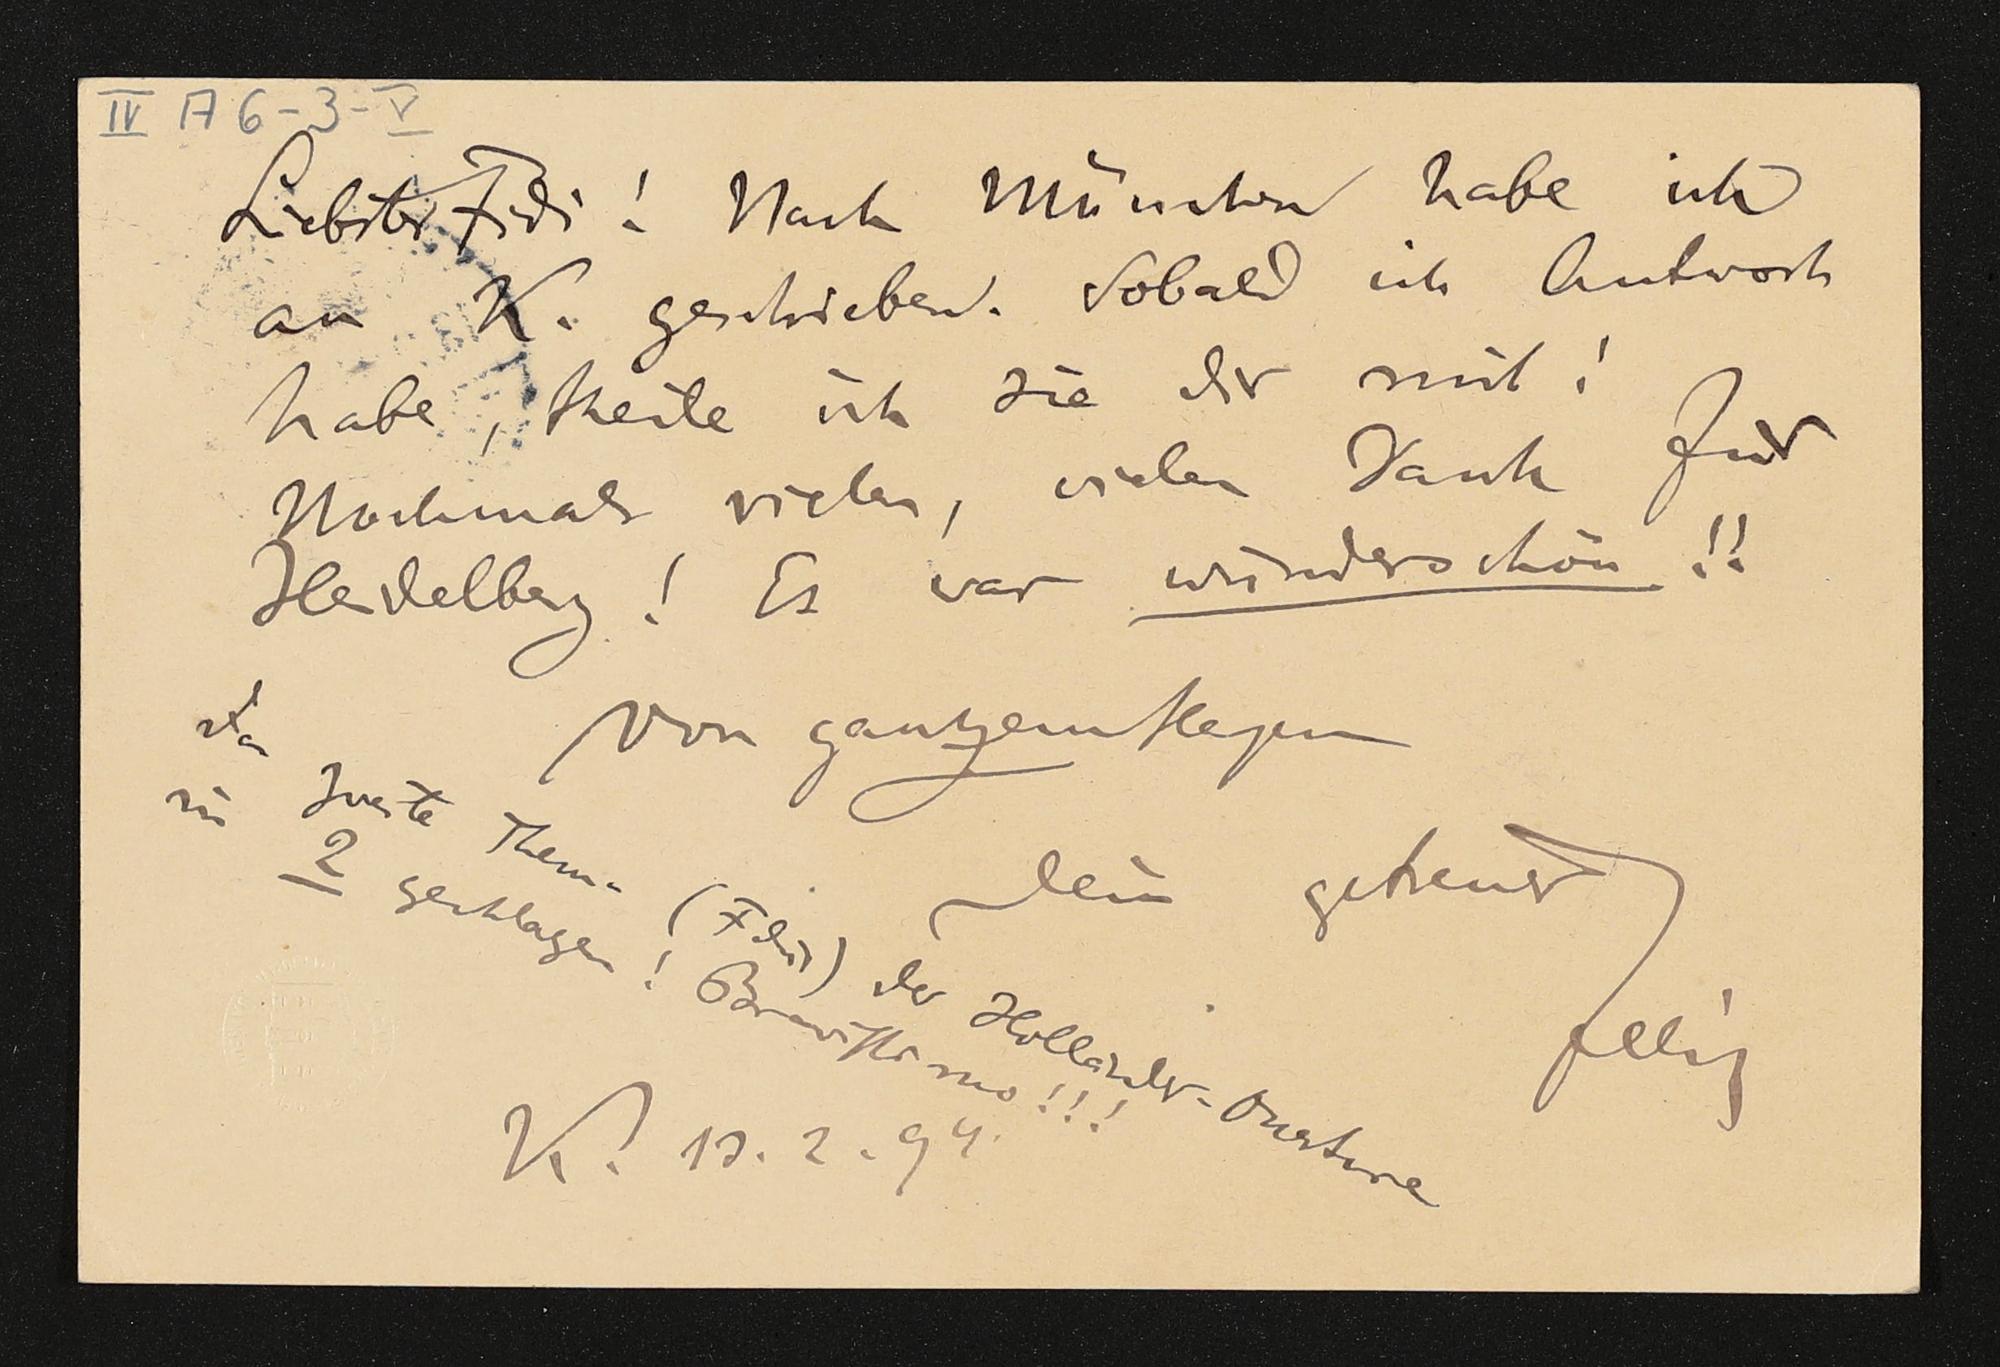 IV A 6-3-V
Liebster Fidi! Nach München habe ich
an K. geschrieben. Sobald ich Antwort
habe, theile ich sie dir mit!
Nochmals vielen, vielen Dank für
Heidelberg! Es war wunderschön!!
Von ganzem Herzen
Dein getreuer
Felix
K. 13. 2. 94.
Das zweite Thema (Fdur) der Holländer-Ouverture
in 2 geschlagen! Bravissimo!!!